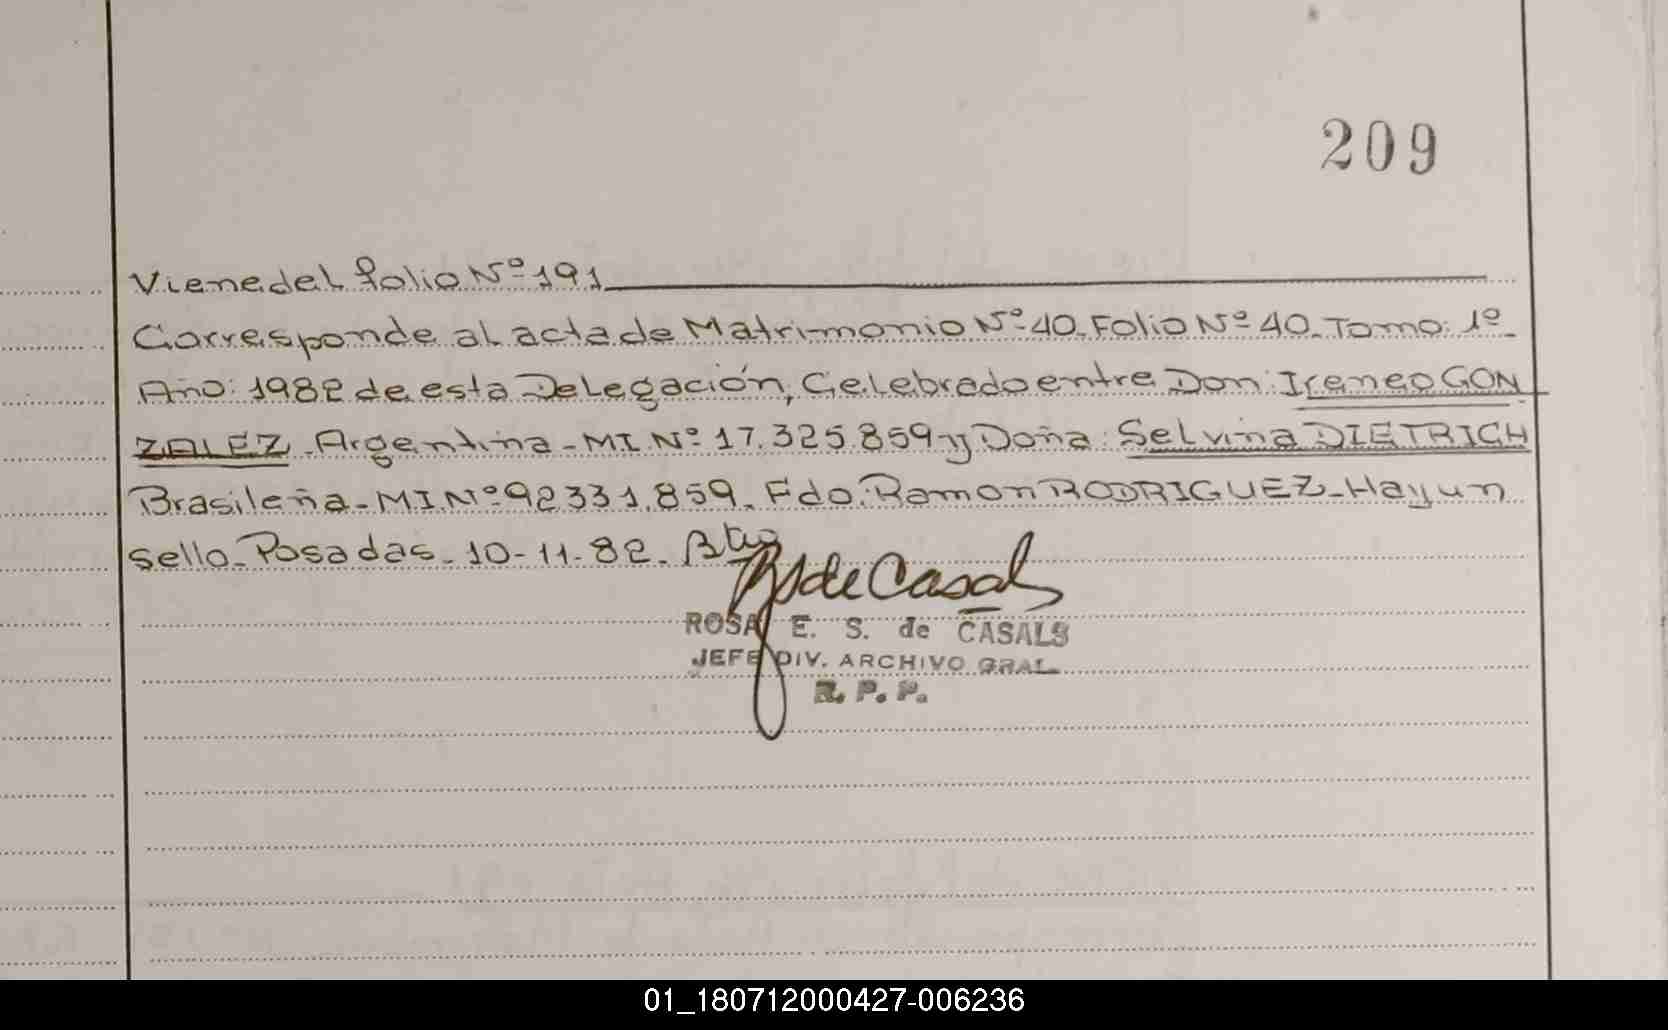 209
Viene del folio Nº 191
Corresponde al acta de Matrimonio Nº 40. Folio Nº 40. Tomo: 1º
Año: 1982 de esta Delegación, Celebrado entre Don: Ireneo GON
ZALEZ - Argentina - M.I. Nº 17.325.859 y Doña: Selvina DIETRICH
Brasileña - M.I. Nº 92331.859. Fdo. Ramon RODRIGUEZ - Hay un
sello - Posadas - 10-11-82.
de Casals
ROSA E. S. de CASALS
JEFE DIV. ARCHIVO GRAL.
R. P. P.
01_180712000427-006236